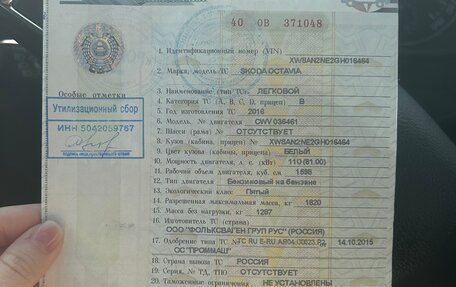 40 ОВ 371048
1. Идентификационный номер (VIN) XW8AN2NE2GH016464
2. Марка, модель ТС SKODA OCTAVIA
3. Наименование (тип ТС) ЛЕГКОВОЙ
4. Категория ТС (A, B, C, D, прицеп) B
5. Год изготовления ТС 2016
6. Модель, № двигателя CWV 036461
7. Шасси (рама) № ОТСУТСТВУЕТ
8. Кузов (кабина, прицеп) № XW8AN2NE2GH016464
9. Цвет кузова (кабины, прицепа) БЕЛЫЙ
10. Мощность двигателя, л. с. (кВт) 110 (81.00)
11. Рабочий объем двигателя, куб. см 1598
12. Тип двигателя Бензиновый на бензине
13. Экологический класс Пятый
14. Разрешенная максимальная масса, кг 1820
15. Масса без нагрузки, кг 1287
16. Изготовитель ТС (страна)
ООО "ФОЛЬКСВАГЕН ГРУП РУС" (РОССИЯ)
17. Одобрение типа ТС № ТС RU E-RU.АЯ04.00023.Р2 14.10.2015
ОС "ПРОММАШ"
18. Страна вывоза ТС РОССИЯ
19. Серия, № ТД, ТПО ОТСУТСТВУЕТ
20. Таможенные ограничения НЕ УСТАНОВЛЕНЫ
Особые отметки
Утилизационный сбор
ИНН 5042059767